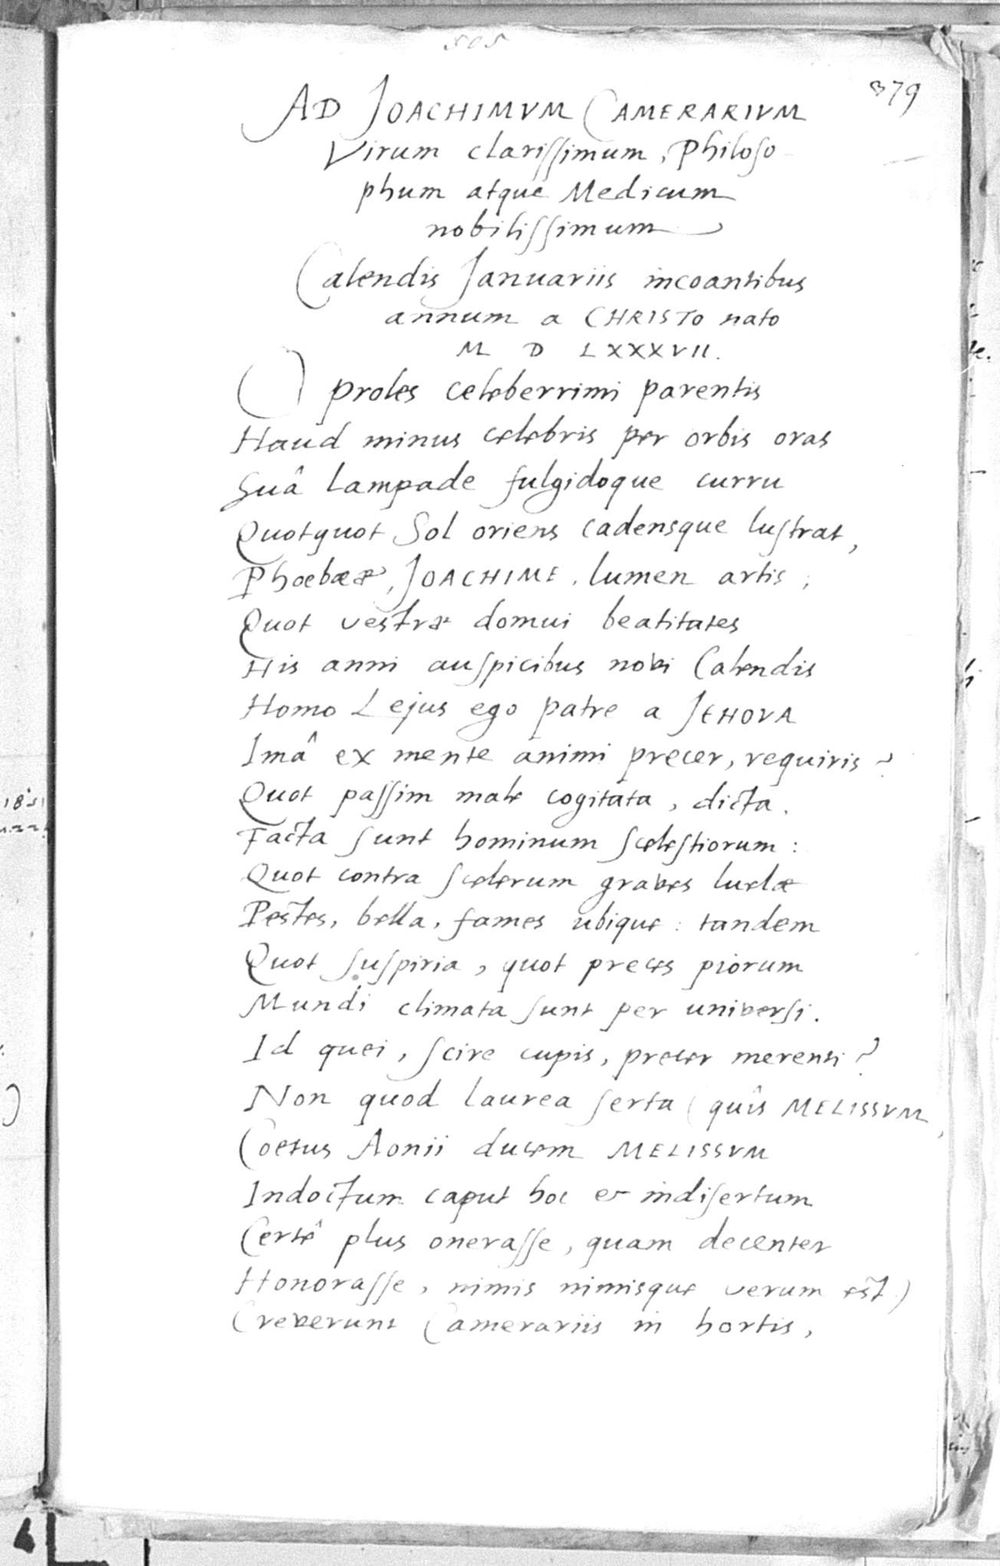 505
379
AD JOACHIMVM CAMERARIVM
Virum clarissimum, Philoso
phum atque Medicum
nobilissimum
Calendis Januariis incoantibus
annum a CHRISTO nato
M D LXXXVII.
O proles celeberrimi parentis
Haud minus celebris per orbis oras
Suâ lampade fulgidoque curru
Quotquot Sol oriens cadensque lustrat,
Phoebææ, JOACHIME, lumen artis,
Quot vestræ domui beatitates
His anni auspicibus novi Calendis
Homo Lejus ego patre a JEHOVA
Imâ ex mente animi precer, requiris?
Quot passim male cogitata, dicta,
Facta sunt hominum scelestiorum:
Quot contra scelerum graves luelæ
Pestes, bella, fames ubique: tandem
Quot suspiria, quot preces piorum
Mundi climata sunt per universi.
Id quei, scire cupis, precer merenti?
Non quod laurea serta (quîs MELISSVM,
Coetus Aonii ducem MELISSVM
Indoctum caput hoc et indisertum
Certê plus onerasse, quam decenter
Honorasse, nimis nimisque verum est)
Creverunt Camerariis in hortis,